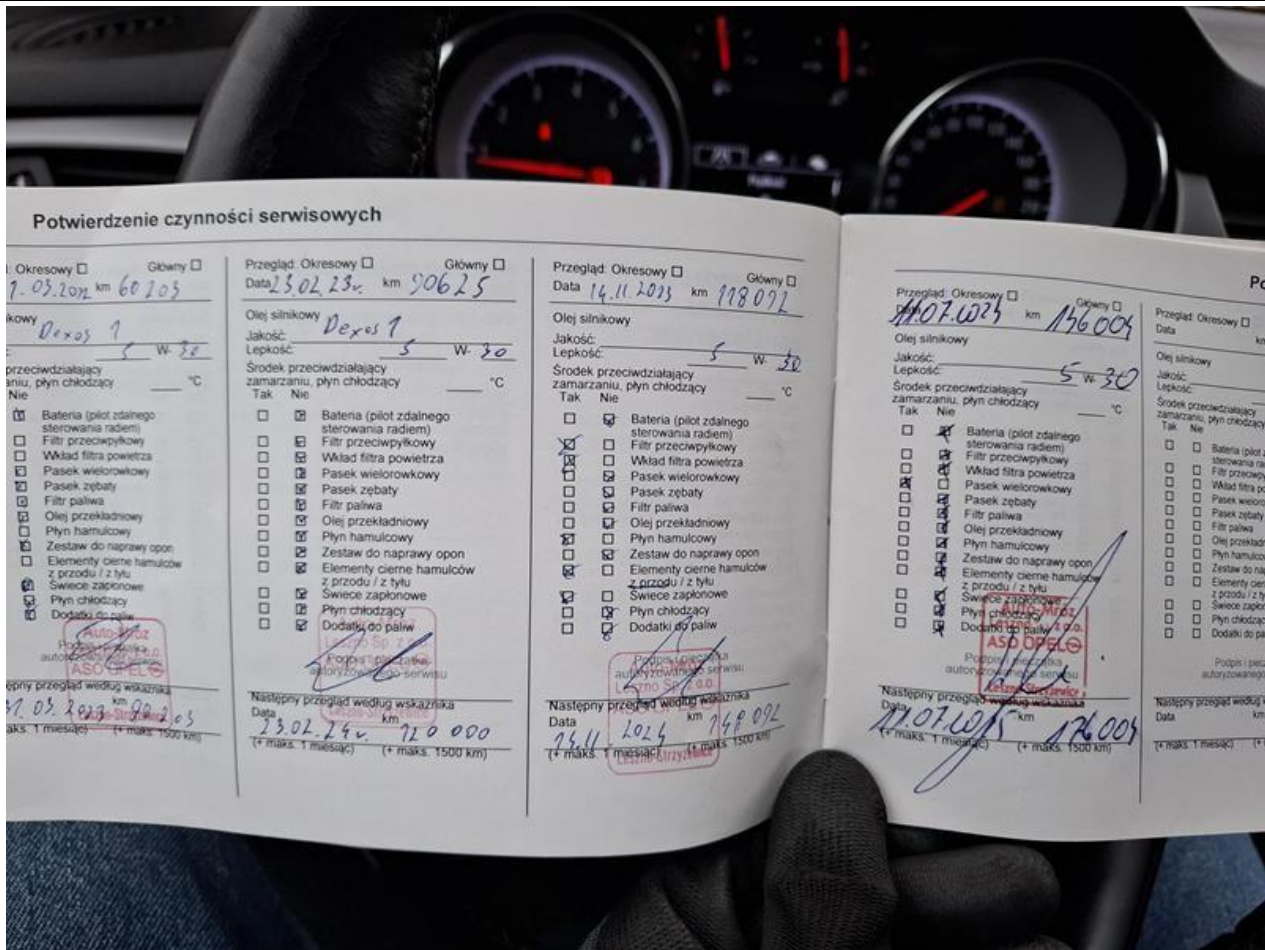 Potwierdzenie czynności serwisowych
Okresowy Główny
.03.2022 km 60203
Dexos 1
5 W- 30
przeciwdziałający
płyn chłodzący °C
Nie
Bateria (pilot zdalnego
sterowania radiem)
Filtr przeciwpyłkowy
Wkład filtra powietrza
Pasek wielorowkowy
Pasek zębaty
Filtr paliwa
Olej przekładniowy
Płyn hamulcowy
Zestaw do naprawy opon
Elementy cierne hamulców
z przodu / z tyłu
Świece zapłonowe
Płyn chłodzący
Dodatki do paliw
Auto-Mróz
Podpis i pieczątka
ASO OPEL
przegląd według wskaźnika
03. 2023 km 90203
Leszno-Strzyżewice
maks. 1 miesiąc) (+ maks. 1500 km)
Przegląd: Okresowy Główny
Data 23.02.23r. km 90625
Olej silnikowy
Jakość: Dexos 1
Lepkość: 5 W- 30
Środek przeciwdziałający
zamarzaniu, płyn chłodzący °C
Tak Nie
Bateria (pilot zdalnego
sterowania radiem)
Filtr przeciwpyłkowy
Wkład filtra powietrza
Pasek wielorowkowy
Pasek zębaty
Filtr paliwa
Olej przekładniowy
Płyn hamulcowy
Zestaw do naprawy opon
Elementy cierne hamulców
z przodu / z tyłu
Świece zapłonowe
Płyn chłodzący
Dodatki do paliw
Leszno Sp. z
Podpis i pieczątka
autoryzowanego serwisu
Następny przegląd według wskaźnika
Data 23.02.24r. km 120 000
(+ maks. 1 miesiąc) (+ maks. 1500 km)
Przegląd: Okresowy Główny
Data 14.11.2023 km 118092
Olej silnikowy
Jakość:
Lepkość: 5 W- 30
Środek przeciwdziałający
zamarzaniu, płyn chłodzący °C
Tak Nie
Bateria (pilot zdalnego
sterowania radiem)
Filtr przeciwpyłkowy
Wkład filtra powietrza
Pasek wielorowkowy
Pasek zębaty
Filtr paliwa
Olej przekładniowy
Płyn hamulcowy
Zestaw do naprawy opon
Elementy cierne hamulców
z przodu / z tyłu
Świece zapłonowe
Płyn chłodzący
Dodatki do paliw
Podpis i pieczątka
autoryzowanego serwisu
Leszno Sp. z o.o.
Następny przegląd według wskaźnika
Data 14.11 2024 km 148 092
(+ maks. 1 miesiąc) (+ maks. 1500 km)
Leszno-Strzyżewice
Przegląd: Okresowy Główny
Data 11.07.2024 km 146004
Olej silnikowy
Jakość:
Lepkość: 5 W- 30
Środek przeciwdziałający
zamarzaniu, płyn chłodzący °C
Tak Nie
Bateria (pilot zdalnego
sterowania radiem)
Filtr przeciwpyłkowy
Wkład filtra powietrza
Pasek wielorowkowy
Pasek zębaty
Filtr paliwa
Olej przekładniowy
Płyn hamulcowy
Zestaw do naprawy opon
Elementy cierne hamulców
z przodu / z tyłu
Świece zapłonowe
Płyn chłodzący
Dodatki do paliw
Auto-Mróz
Leszno z o.o.
ASO OPEL
Podpis i pieczątka
autoryzowanego serwisu
Leszno-Strzyżewice
Następny przegląd według wskaźnika
Data 11.07.2025 km 176004
(+ maks. 1 miesiąc) (+ maks. 1500 km)
Przegląd: Okresowy
Data
Olej silnikowy
Jakość:
Lepkość:
Środek przeciwdziałający
zamarzaniu, płyn chłodzący
Tak Nie
Bateria (pilot
Filtr
Wkład filtra
Pasek
Pasek zębaty
Filtr paliwa
Olej
Płyn
Zestaw do
Elementy
z przodu / z
Świece
Płyn chłodzący
Dodatki do
Następny przegląd według
Data
(+ maks. 1 miesiąc)